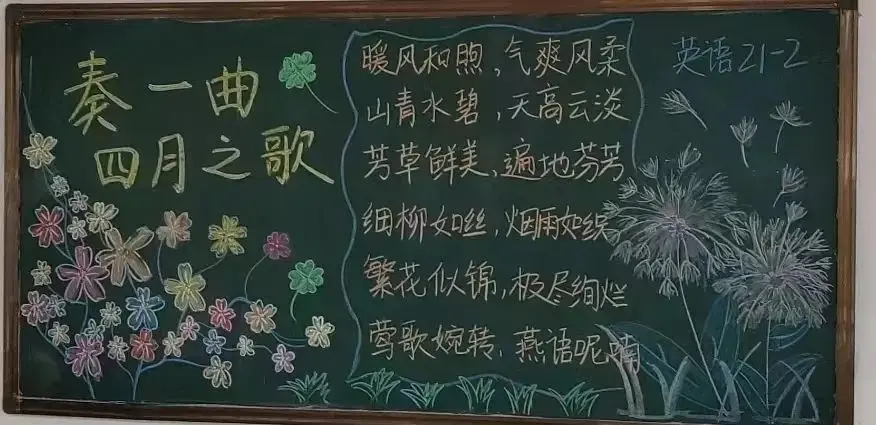 奏一曲
四月之歌
暖风和煦，气爽风柔
山青水碧，天高云淡
芳草鲜美，遍地芬芳
细柳如丝，烟雨如织
繁花似锦，极尽绚烂
莺歌婉转，燕语呢喃
英语21-2